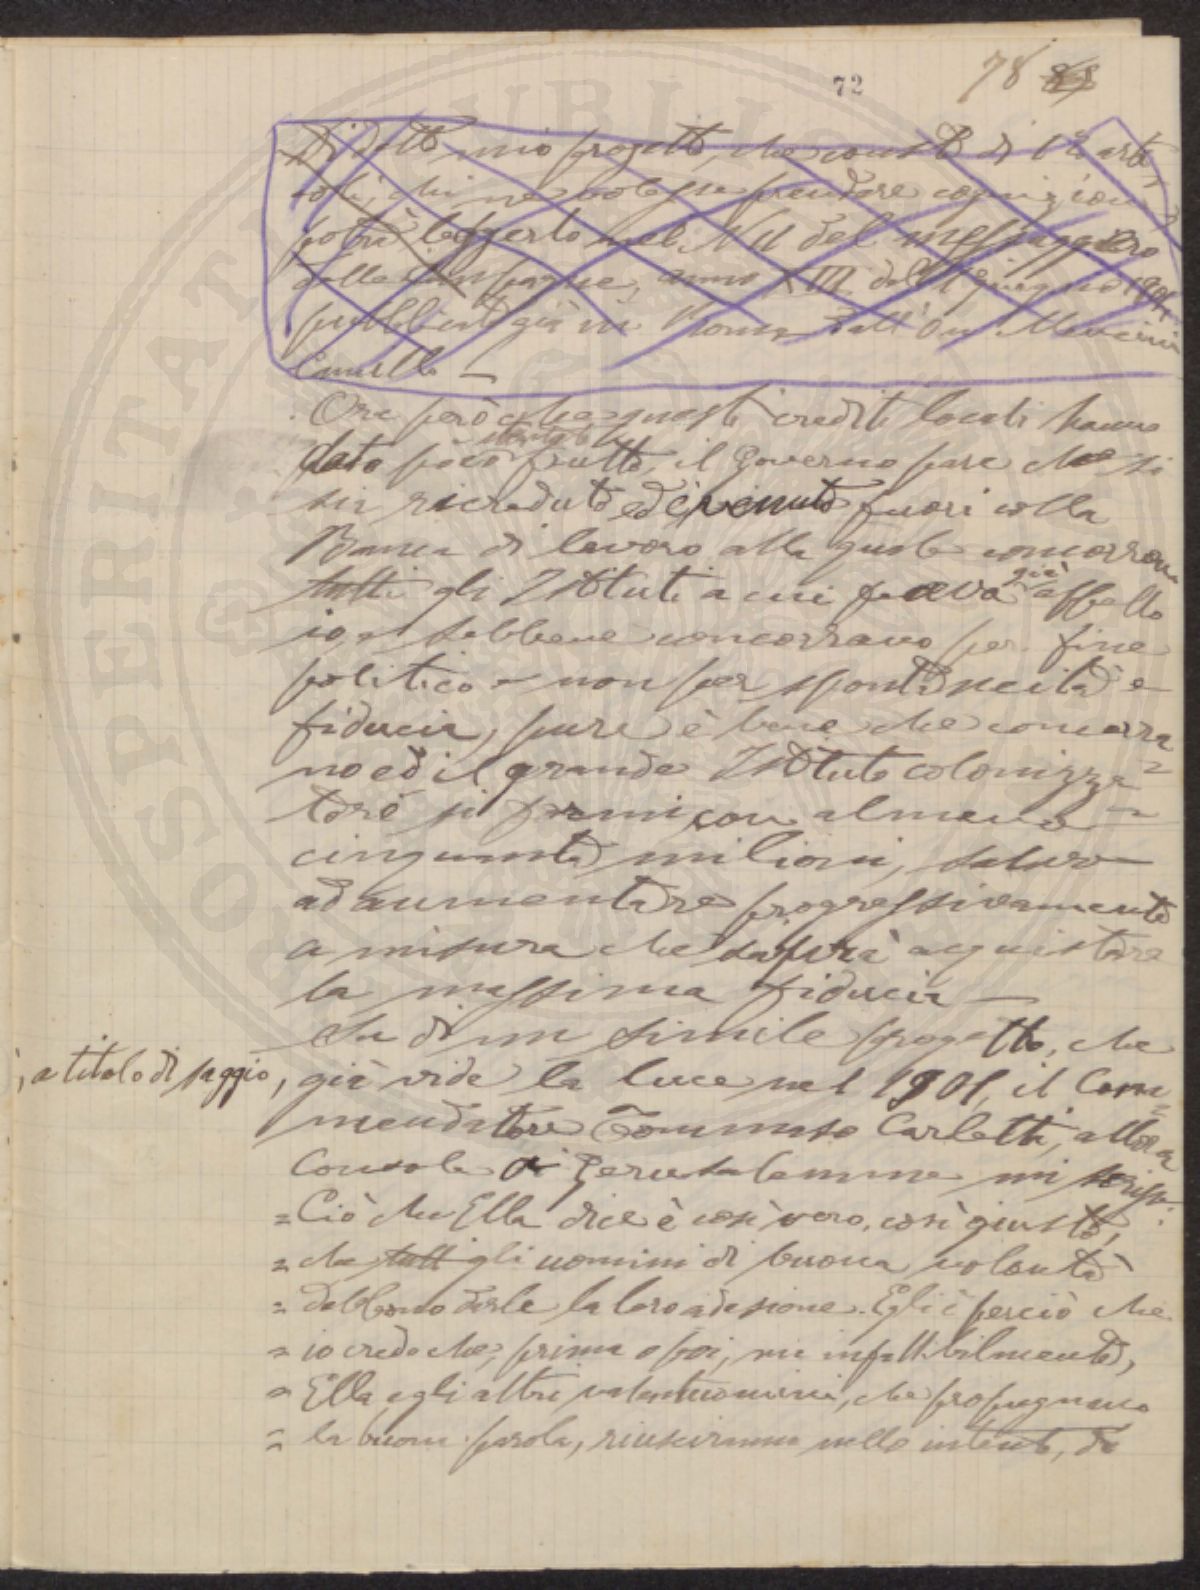 72
78 88
Di detto mio progetto, che consta di 12 arti=
coli, chi ne volesse prendere cognizione
potrà leggerlo nel N 11 del messaggiero
delle campagne, anno XIII del 1 giugno 1901
pubblicato già in Roma dall'On Mancini
Camillo —
Ora però che questi crediti locali hanno
dato poco frutto, il Governo pare che si
sia ricreduto ed è venuto fuori colla
Banca di lavoro alla quale concorrono
tutti gli Istituti a cui faceva già appello
io, e sebbene concorrano per fine
politico e non per spontaneità e
fiducia, pure è bene che concorra
no ed il grande Istituto colonizza=
tore si formi con almeno
cinquanta milioni, salvo
ad aumentare progressivamente
a misura che saprà acquistare
la massima fiducia —
Su di un simile progetto, che
, a titolo di saggio, già vide la luce nel 1901, il Com=
mendatore Tommaso Carletti, allora
Console di Gerusalemme mi scrisse:
= Ciò che Ella dice è così vero, così giusto,
= che tutt gli uomini di buona volontà
= debbono darle la loro adesione. Egli è perciò che
= io credo che, prima o poi, ma infallibilmente,
= Ella e gli altri valentuomini, che propugnano
= la buona parola, riusciranno nello intento, di